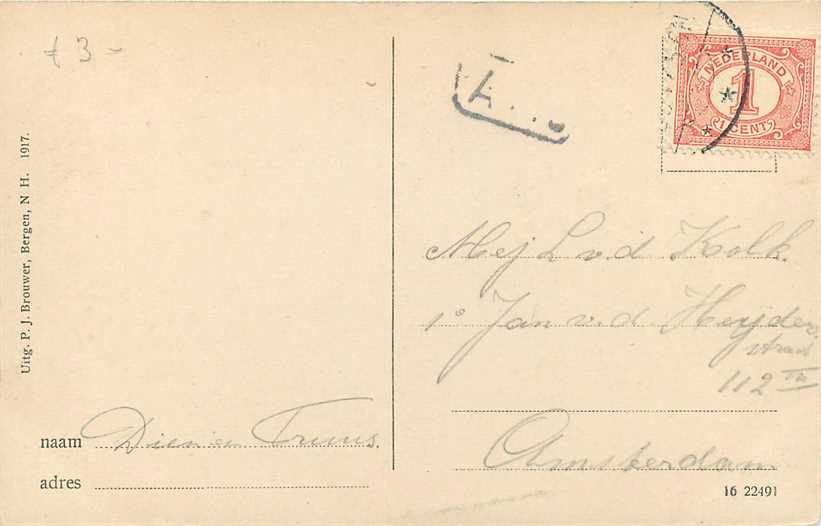 f 3 -
Uitg. P. J. Brouwer, Bergen, N H. 1917.
A...
NEDERLAND
1
1 CENT
Mej L v d Kolk.
1e Jan v.d. Heyden
straat
112 III
Amsterdam
naam Dien en Truus.
adres
16 22491